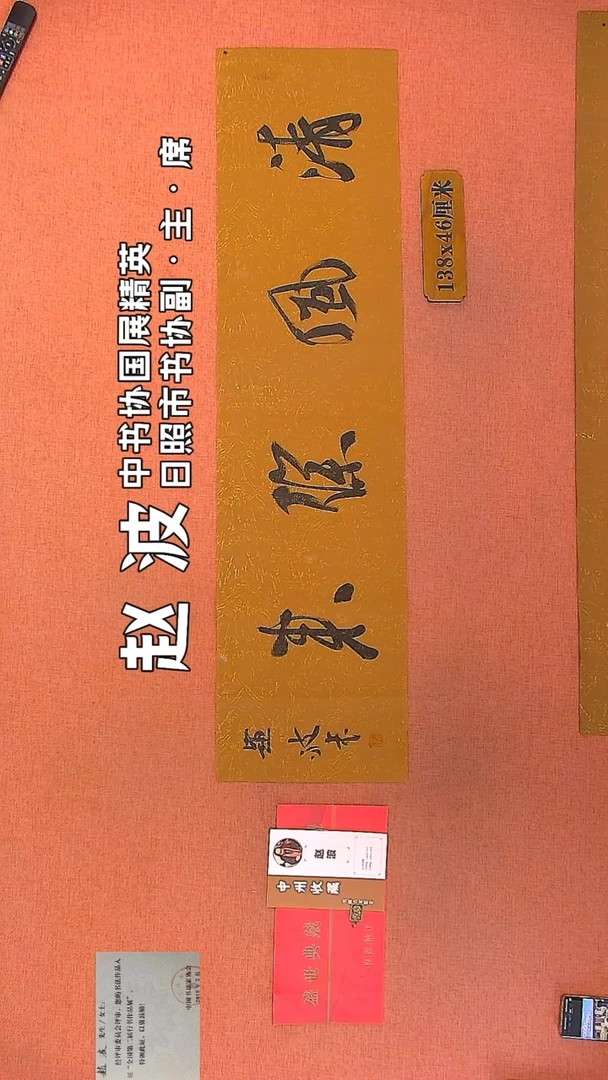 赵波
中书协国展精英
日照市书协副·主·席
清風徐來
波书
138x46厘米
赵波
中州收藏
盛世典藏
赵波 先生/女士:
经评审委员会评审,您的书法作品入
展“全国第二届行书作品展”,
特颁此证,以资鼓励!
中国书法家协会